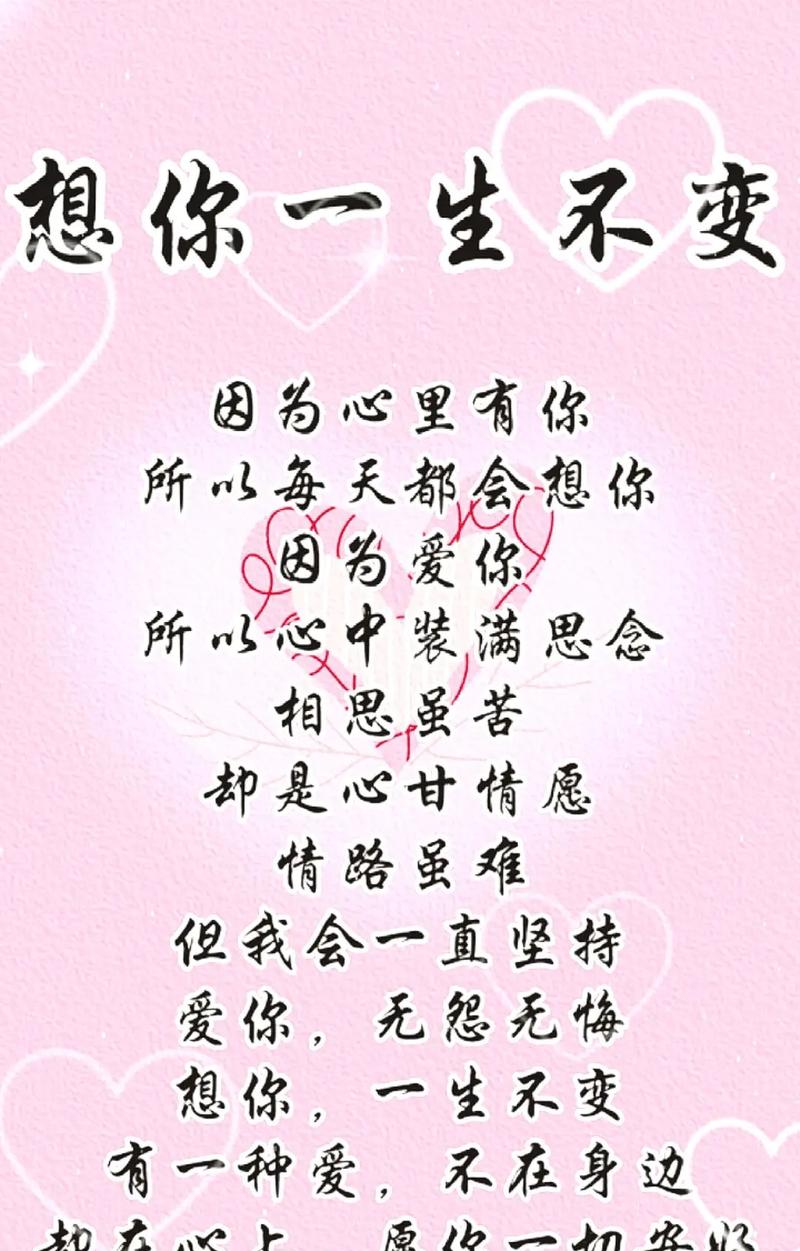 想你一生不变
因为心里有你
所以每天都会想你
因为爱你
所以心中装满思念
相思虽苦
却是心甘情愿
情路虽难
但我会一直坚持
爱你，无怨无悔
想你，一生不变
有一种爱，不在身边
却在心上 愿你一切安好